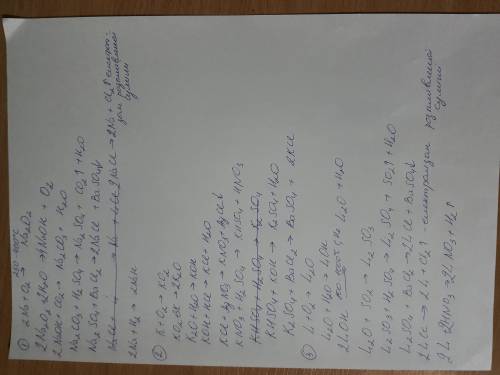 ① 2Na + O₂ → Na₂O₂
2Na₂O₂ 2H₂O → 4NaOH + O₂
2NaOH + CO₂ → Na₂CO₃ + H₂O
Na₂CO₃ + H₂SO₄ → Na₂SO₄ + CO₂↑ + H₂O
Na₂SO₄ + BaCl₂ → 2NaCl + BaSO₄↓
2NaCl → 2Na + Cl₂↑
2Na + H₂ → 2NaH
② K + O₂ → KO₂
KO₂ + 3K → 2K₂O
K₂O + H₂O → KOH
KOH + HCl → KCl + H₂O
KCl + AgNO₃ → KNO₃ + AgCl↓
KNO₃ + H₂SO₄ → KHSO₄ + HNO₃
KHSO₄ + KOH → K₂SO₄ + H₂O
K₂SO₄ + BaCl₂ → BaSO₄ + 2KCl
③ Li + O₂ → Li₂O
Li₂O + H₂O → LiOH
2LiOH Li₂O + H₂O
Li₂O + SO₂ → Li₂SO₃
Li₂SO₃ + H₂SO₄ → Li₂SO₄ + SO₂↑ + H₂O
Li₂SO₄ + BaCl₂ → 2LiCl + BaSO₄↓
2LiCl → 2Li + Cl₂↑ -
2Li 2HNO₃ → 2LiNO₃ + H₂↑